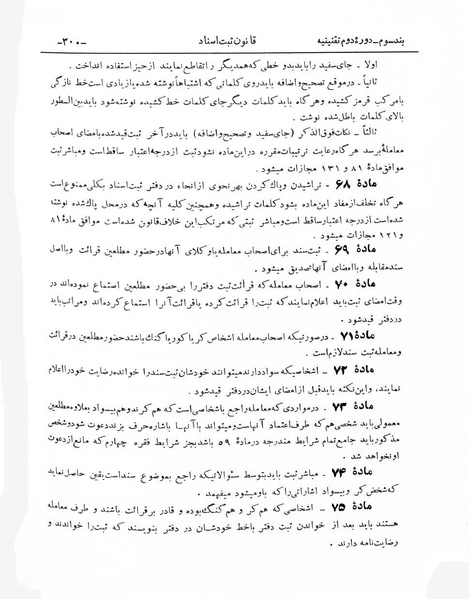 بندسوم ـ دورهٔ دوم تقنینیه
قانون ثبت اسناد
ـ۳۰۰ـ
اولا ـ جای سفید را باید بدو خطی که همدیگر را تقاطع نمایند از حیز استفاده انداخت .
ثانیاً ـ در موقع تصحیح و اضافه باید روی کلماتی که اشتباهاً نوشته شده یا زیادی است خط نازکی
با مرکب قرمز کشیده و هر گاه باید کلمات دیگر جای کلمات خط کشیده نوشته شود باید بین السطور
بالای کلمات باطل شده نوشت .
ثالثاً ـ نکات فوق الذکر (جای سفید و تصحیح و اضافه) باید در آخر ثبت قید شده بامضای اصحاب
معامله برسد هر گاه رعایت ترتیبات مقرره در این ماده نشود ثبت از درجه اعتبار ساقط است و مباشر ثبت
موافق مادهٔ ۸۱ و ۱۳۱ مجازات میشود .
مادهٔ ۶۸ ـ تراشیدن و پاک کردن بهر نحوی از انحاء در دفتر ثبت اسناد بکلی ممنوع است
هر گاه تخلف از مفاد این ماده بشود کلمات تراشیده و همچنین کلیه آنچه که در محل پاک شده نوشته
شده است از درجه اعتبار ساقط است و مباشر ثبتی که مرتکب این خلاف قانون شده است موافق مادهٔ ۸۱
و ۱۲۱ مجازات میشود .
مادهٔ ۶۹ ـ ثبت سند برای اصحاب معامله یا وکلای آنها در حضور مطلعین قرائت و با اصل
سند مقابله و با امضای آنها تصدیق میشود .
مادهٔ ۷۰ ـ اصحاب معامله که قرائت ثبت دفتر را بی حضور مطلعین استماع نموده اند در
وقت امضای ثبت باید اعلام نمایند که ثبت را قرائت کرده یا قرائت آنرا استماع کرده اند و مراتب باید
در دفتر قید شود .
مادهٔ ۷۱ ـ در صورتیکه اصحاب معامله اشخاص کر یا کور یا گنک باشند حضور مطلعین در قرائت
و معامله ثبت سند لازم است .
مادهٔ ۷۲ ـ اشخاصیکه سواد دارند میتوانند خودشان ثبت سند را خوانده رضایت خود را اعلام
نمایند ، و این نکته باید قبل از امضای ایشان در دفتر قید شود .
مادهٔ ۷۳ ـ در مواردی که معامله راجع باشخاصی است که هم کرند و هم بیسواد بعلاوه مطلعین
معمولی باید شخصی هم که طرف اعتماد آنها است و میتواند با آنها با اشاره حرف بزند دعوت شود و شخص
مذکور باید جامع تمام شرایط مندرجه در مادهٔ ۵۹ باشد بجز شرایط فقره چهارم که مانع از دعوت
او نخواهد شد .
مادهٔ ۷۴ ـ مباشر ثبت باید بتوسط سئوالاتیکه راجع بموضوع سند است یقین حاصل نماید
که شخص کر و بیسواد اشاراتی را که باو میشود میفهمد .
مادهٔ ۷۵ ـ اشخاصی که هم کر و هم گنک بوده و قادر بر قرائت باشند و طرف معامله
هستند باید بعد از خواندن ثبت دفتر با خط خودشان در دفتر بنویسند که ثبت را خواندند و
رضایت نامه دارند .